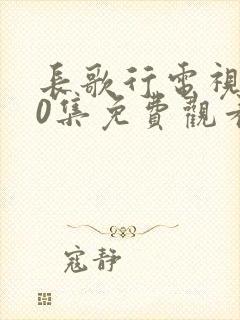 長歌行電視
0集免費觀看
寇靜